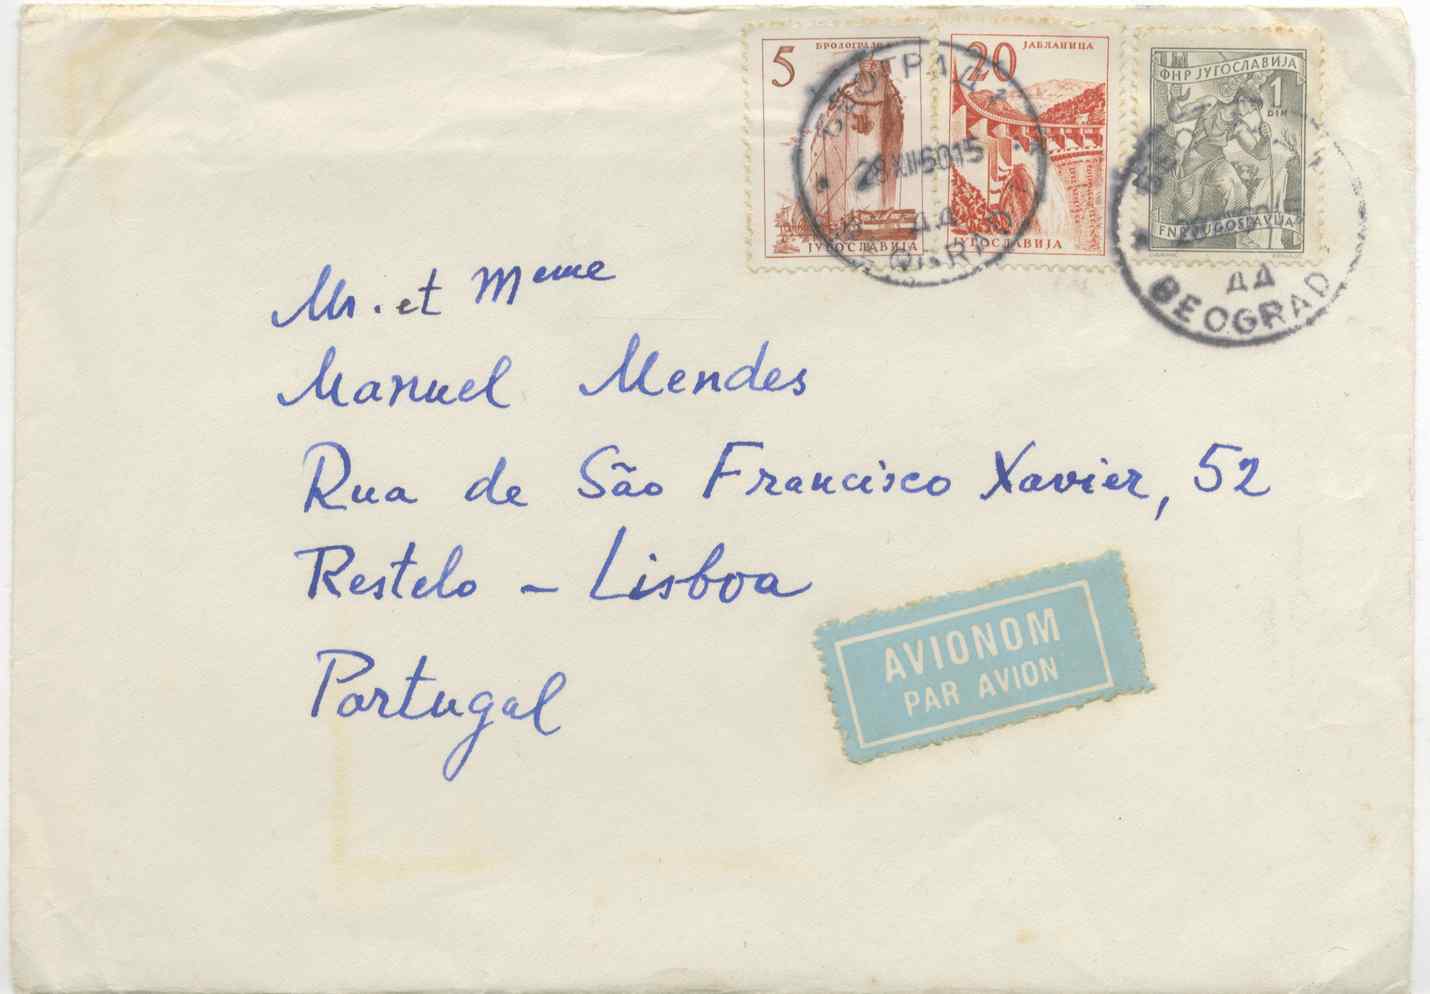 5
БРОДОГРАДЊА
ЈУГОСЛАВИЈА
20
ЈАБЛАНИЦА
ЈУГОСЛАВИЈА
ФНР ЈУГОСЛАВИЈА
1
DIN
FNR JUGOSLAVIJA
БЕОГРАД
28 XII 60 15
ДД
BEOGRAD
ДД
BEOGRAD
Mr. et Mme
Manuel Mendes
Rua de São Francisco Xavier, 52
Restelo – Lisboa
Portugal
AVIONOM
PAR AVION